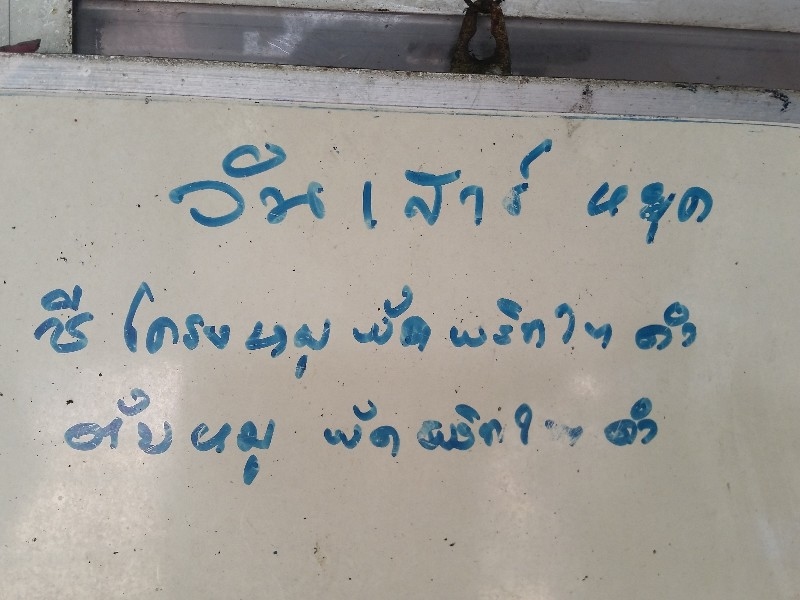 วันเสาร์ หยุด
ซี่โครงหมูผัดพริกไทดำ
ตับหมูผัดพริกไทดำ